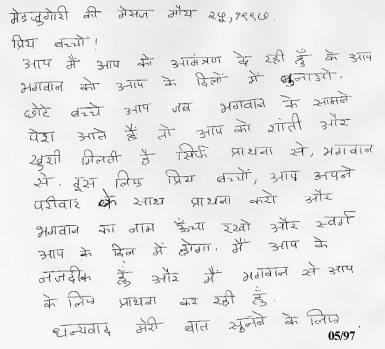 मेडजुगोरी की मेसज मौय २५,१९९७.
प्रिय बच्चों!
आप मैं आप को आमंत्रण दे रही हुँ के आप
भगवान को आप के दिलों में बुनाओ.
छोटे बच्चे आप जब भगवान के सामने
पेश आते हैं तो आप को शांती और
खुशी मिलती है सिर्फ प्राथना से, भगवान
से. इस लिए प्रिय बच्चों, आप अपने
परीवार के साथ प्राथना करो और
भगवान का नाम ऊँचा रखो और स्वर्ग
आप के दिल में होगा. मैं आप के
नजदीक हुँ और मैं भगवान से आप
के लिए प्राथना कर रही हुँ.
धन्यवाद मेरी बात सुनने के लिए
05/97